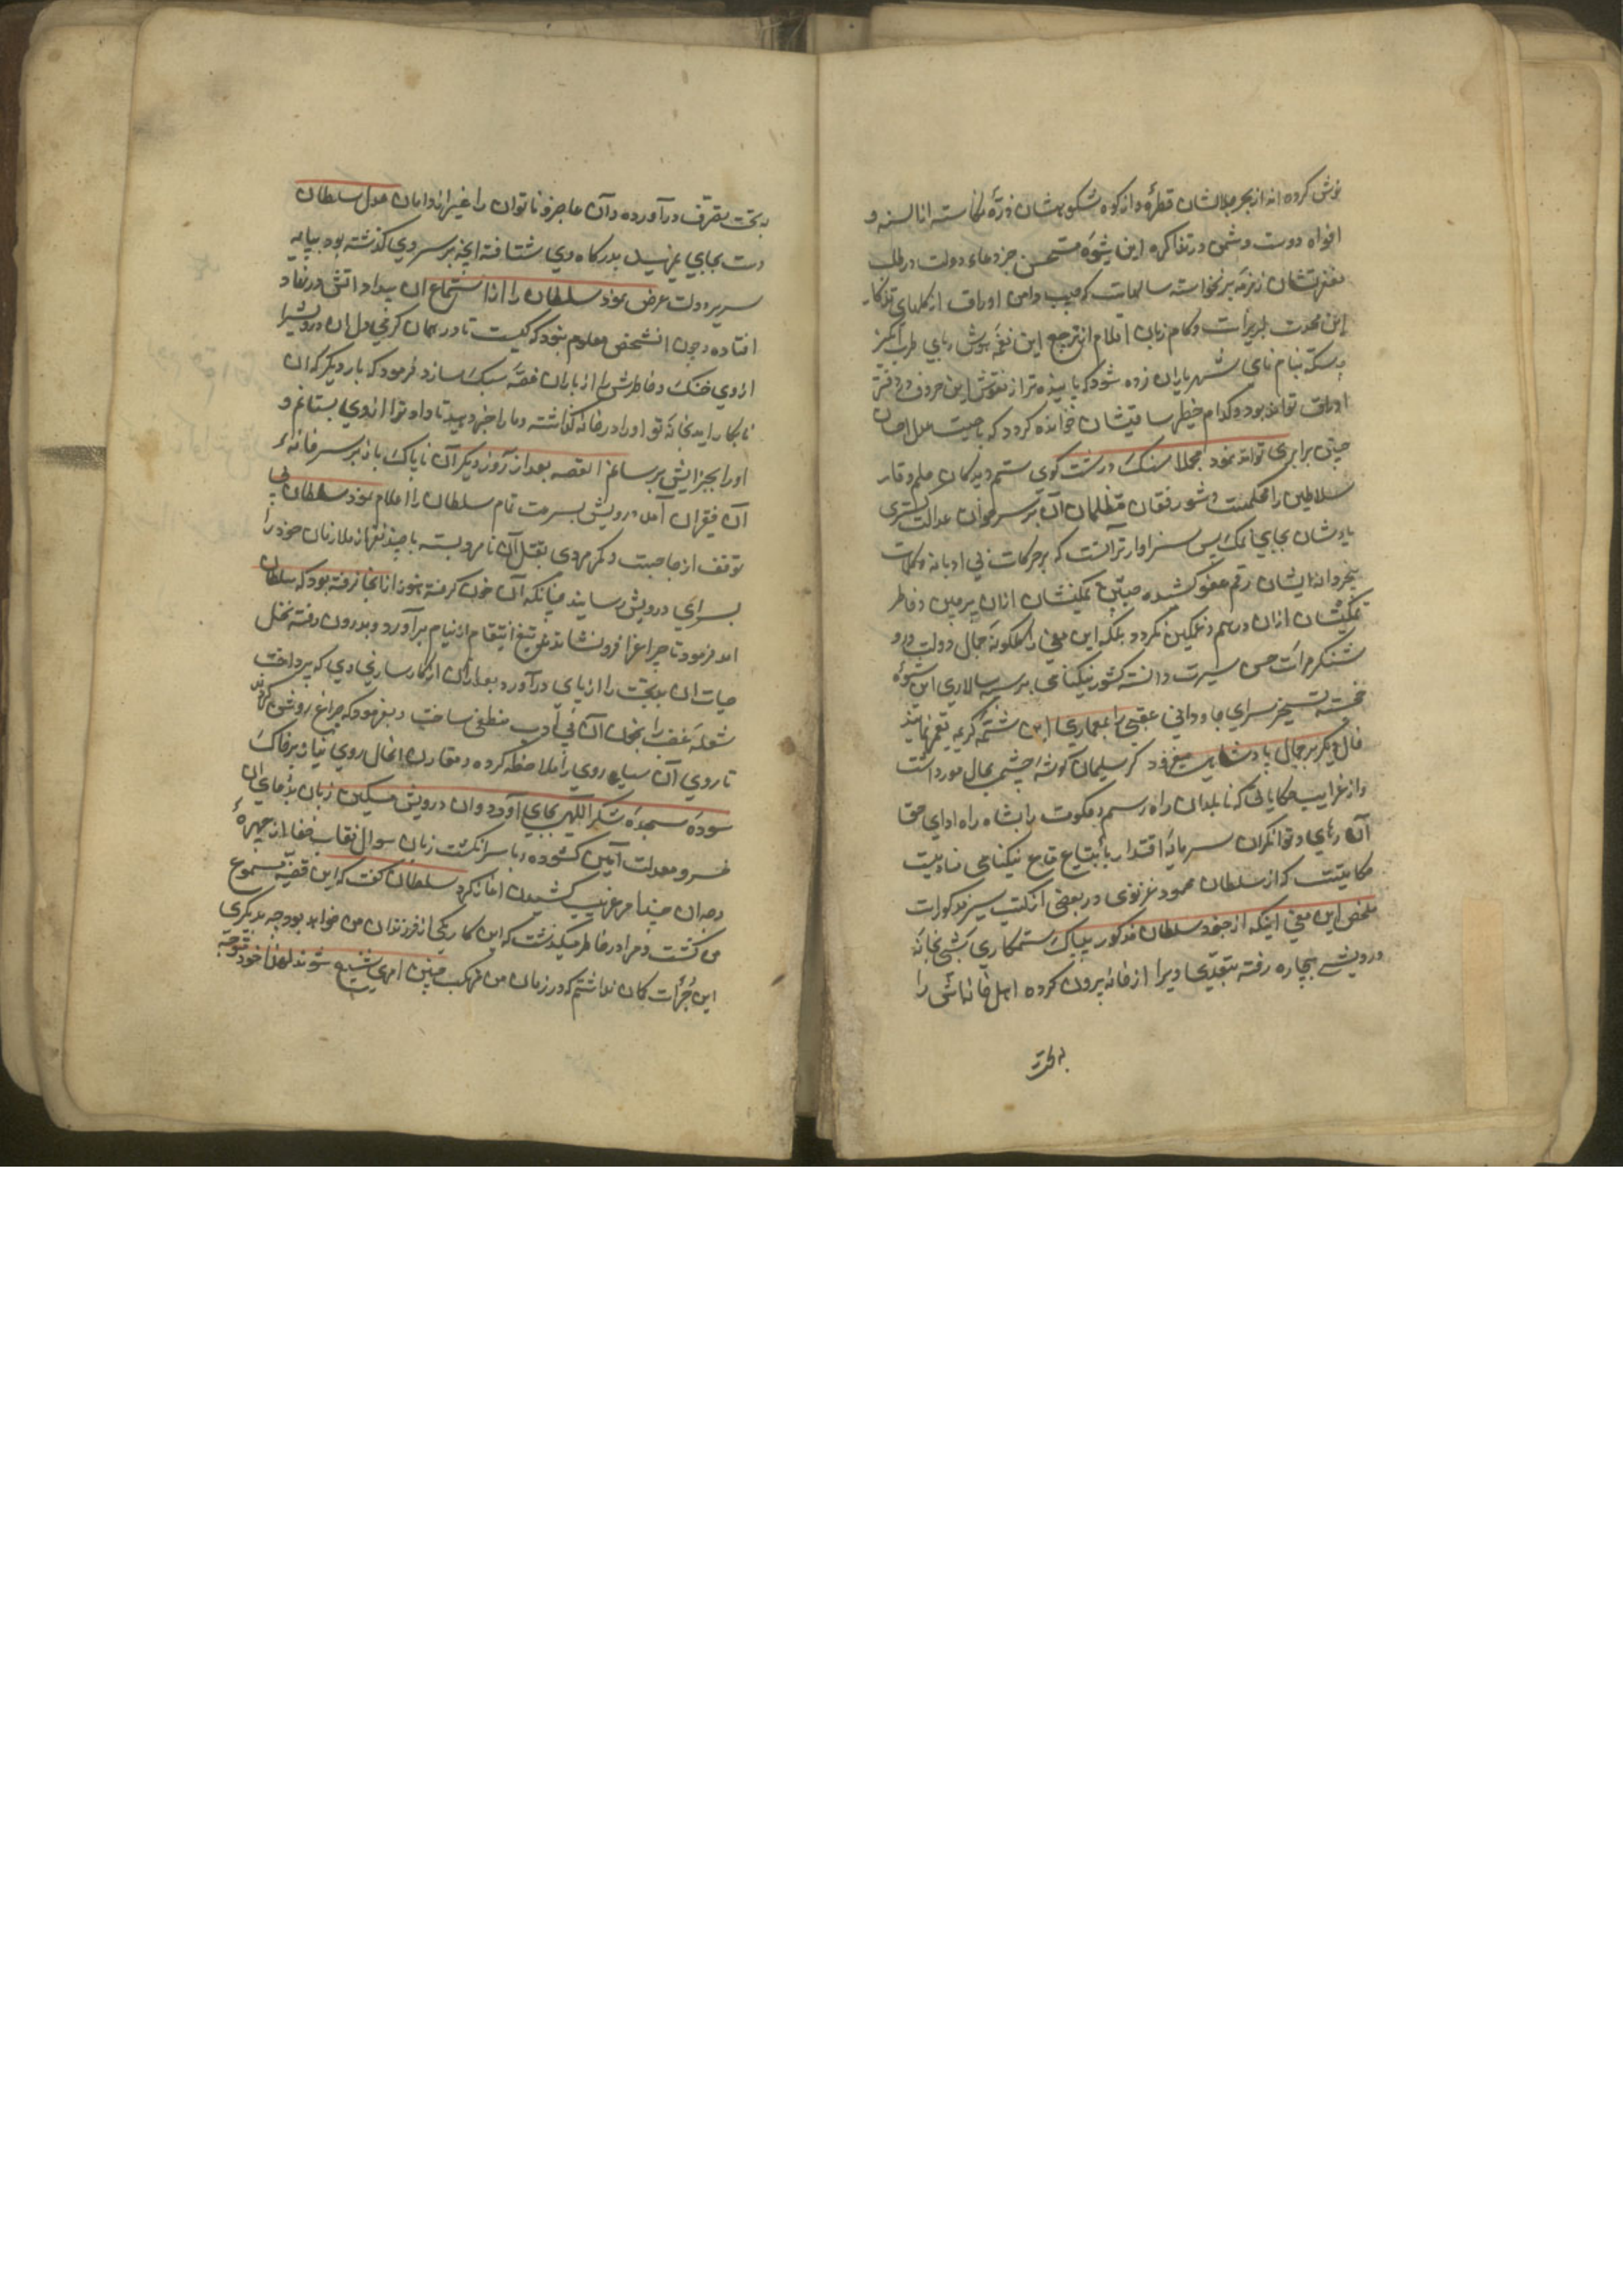 نوش کرده اند از بحر جلالشان قطرهٔ و از کوه شکوهشان ذرهٔ نکاسته السنه و
افواه دوست و دشمن در تذاکره این شیوه مستحسن جز دعاء دولت در طلب
مغفرتشان زمزمه بر نخواسته سالهاست که جیب و دامن اوراق از کلهای تذکار
این محمدت لبریز است و کام زبان اقلام از ترجیع این نغمه هوش ربای طرب انکیز
سکه بنام نامی شهریاران زده شود که پاینده تر از نقوش این حروف در دفتر
اوراق تواند بود و کدام خطبه ساقیشان خوانده کردد که با صیت عدل احسان
چنین برابری تواند نمود مجملا سنک درشت کوی ستم دیدکان حلم و قار
سلاطین را محکست و شور فغان متظلمان آن بر سر خوان عدالت کستری
پادشان بجای نمک پس سزاوار تر آنست که بر حرکات بی ادبانه و کلمات
بیخردانه ایشان رقم عفو کشیده جبین تمکینشان از ان پرچین و خاطر
تمکینشان ازان درهم و غمکین نکردد بلکه این معنی را کلکونه جمال دولت و رو
شنکر مرآت حسن سیرت دانسته کشور نیکنامی بر سپه سالاری این شیوهٔ
خجسته تسخیر سرای جاودانی عقبی را بمعماری این شتمه کریمه تعمیر نمایند
خال دیکر بر جمال پادشاهیت میفزود کر سلیمان کوشهٔ چشمی بحال مور داشت
و از غرایب حکایاتی که نابلدان راه رسم حکومت را بشاه راه ادای حق
آن رهای و توانکران سرمایهٔ اقتدار بابتیاع متاع نیکنامی منادیست
حکایتیست که از سلطان محمود غزنوی در بعضی از کتب سیر مذکورات
ملخص این معنی اینکه از جنود سلطان مذکور بیباک ستمکاری شبی بخانهٔ
درویشی بیچاره رفته بتعدی ویرا از خانه بیرون کرده اهل خانه اش را
بدبخت
بدبخت بتصرف درآورده و آن عاجز و ناتوان را غیر از دامان عدل سلطان
دست بجایی نرسید بدرکاه وی شتافته انچه بر سر وی کذشته بود بپایه
سریر دولت عرض نمود سلطان را از استماع ان بیداد اتش در نهاد
افتاده و چون انشخص معلوم نبود که کیست تا در همان کرمی دل ان درویشرا
ازوی خنک و خاطرش را از باران غصه سبک سازد فرمود که بار دیکر که ان
نابکار اید بخانهٔ تو او را در خانه کذاشته و ما را خبر دهید تا داد ترا ازوی بستانم و
او را بجزایش برسانم القصه بعد از سه روز دیکر آن ناپاک باز بر سر خانهٔ
آن فقیر ان آمد درویش بسرعت تمام سلطان را اعلام نمود سلطان بی
توقف از جا جست و کمر مردی بقتل آن نامرد بسته با چند نفر از ملازمان خود را
بسرای درویش رسانید چنانکه آن خون کرفته هنوز از انجا نرفته بود که سلطان
امد فرمود تا چراغرا فرونشاندند تیغ انتقام از نیام برآورد و بدرون رفته نخل
حیات ان بدبخت را از پای درآورد بعد از ان از کارسازی وی که پرداخت
شعله غضب را بخون آن بی ادب منطفی ساخت و بفرمود که چراغ روشن کردند
تا روی آن سیاه روی را ملاحظه کرده و مقارن انحال روی نیاز بر خاک
سوده سجدهٔ شکر الهی بجای آورد و ان درویش مسکین زبان بدعای ان
خسرو معدلت آیین کشوده و با سرانکشت زبان سوال نقاب خفا از چهرهٔ
وجه ان چند امر غریب کشیدن اغاز کرد سلطان کفت که این قضیه مسموع
من کشت و مرا در خاطر میکذشت که این کار یکی از فرزندان من خواهد بود چه بدیکری
این جرات کمان نداشتم که در زمان من مرتکب چنین امری شنیع شوند لهذا خود متوجه